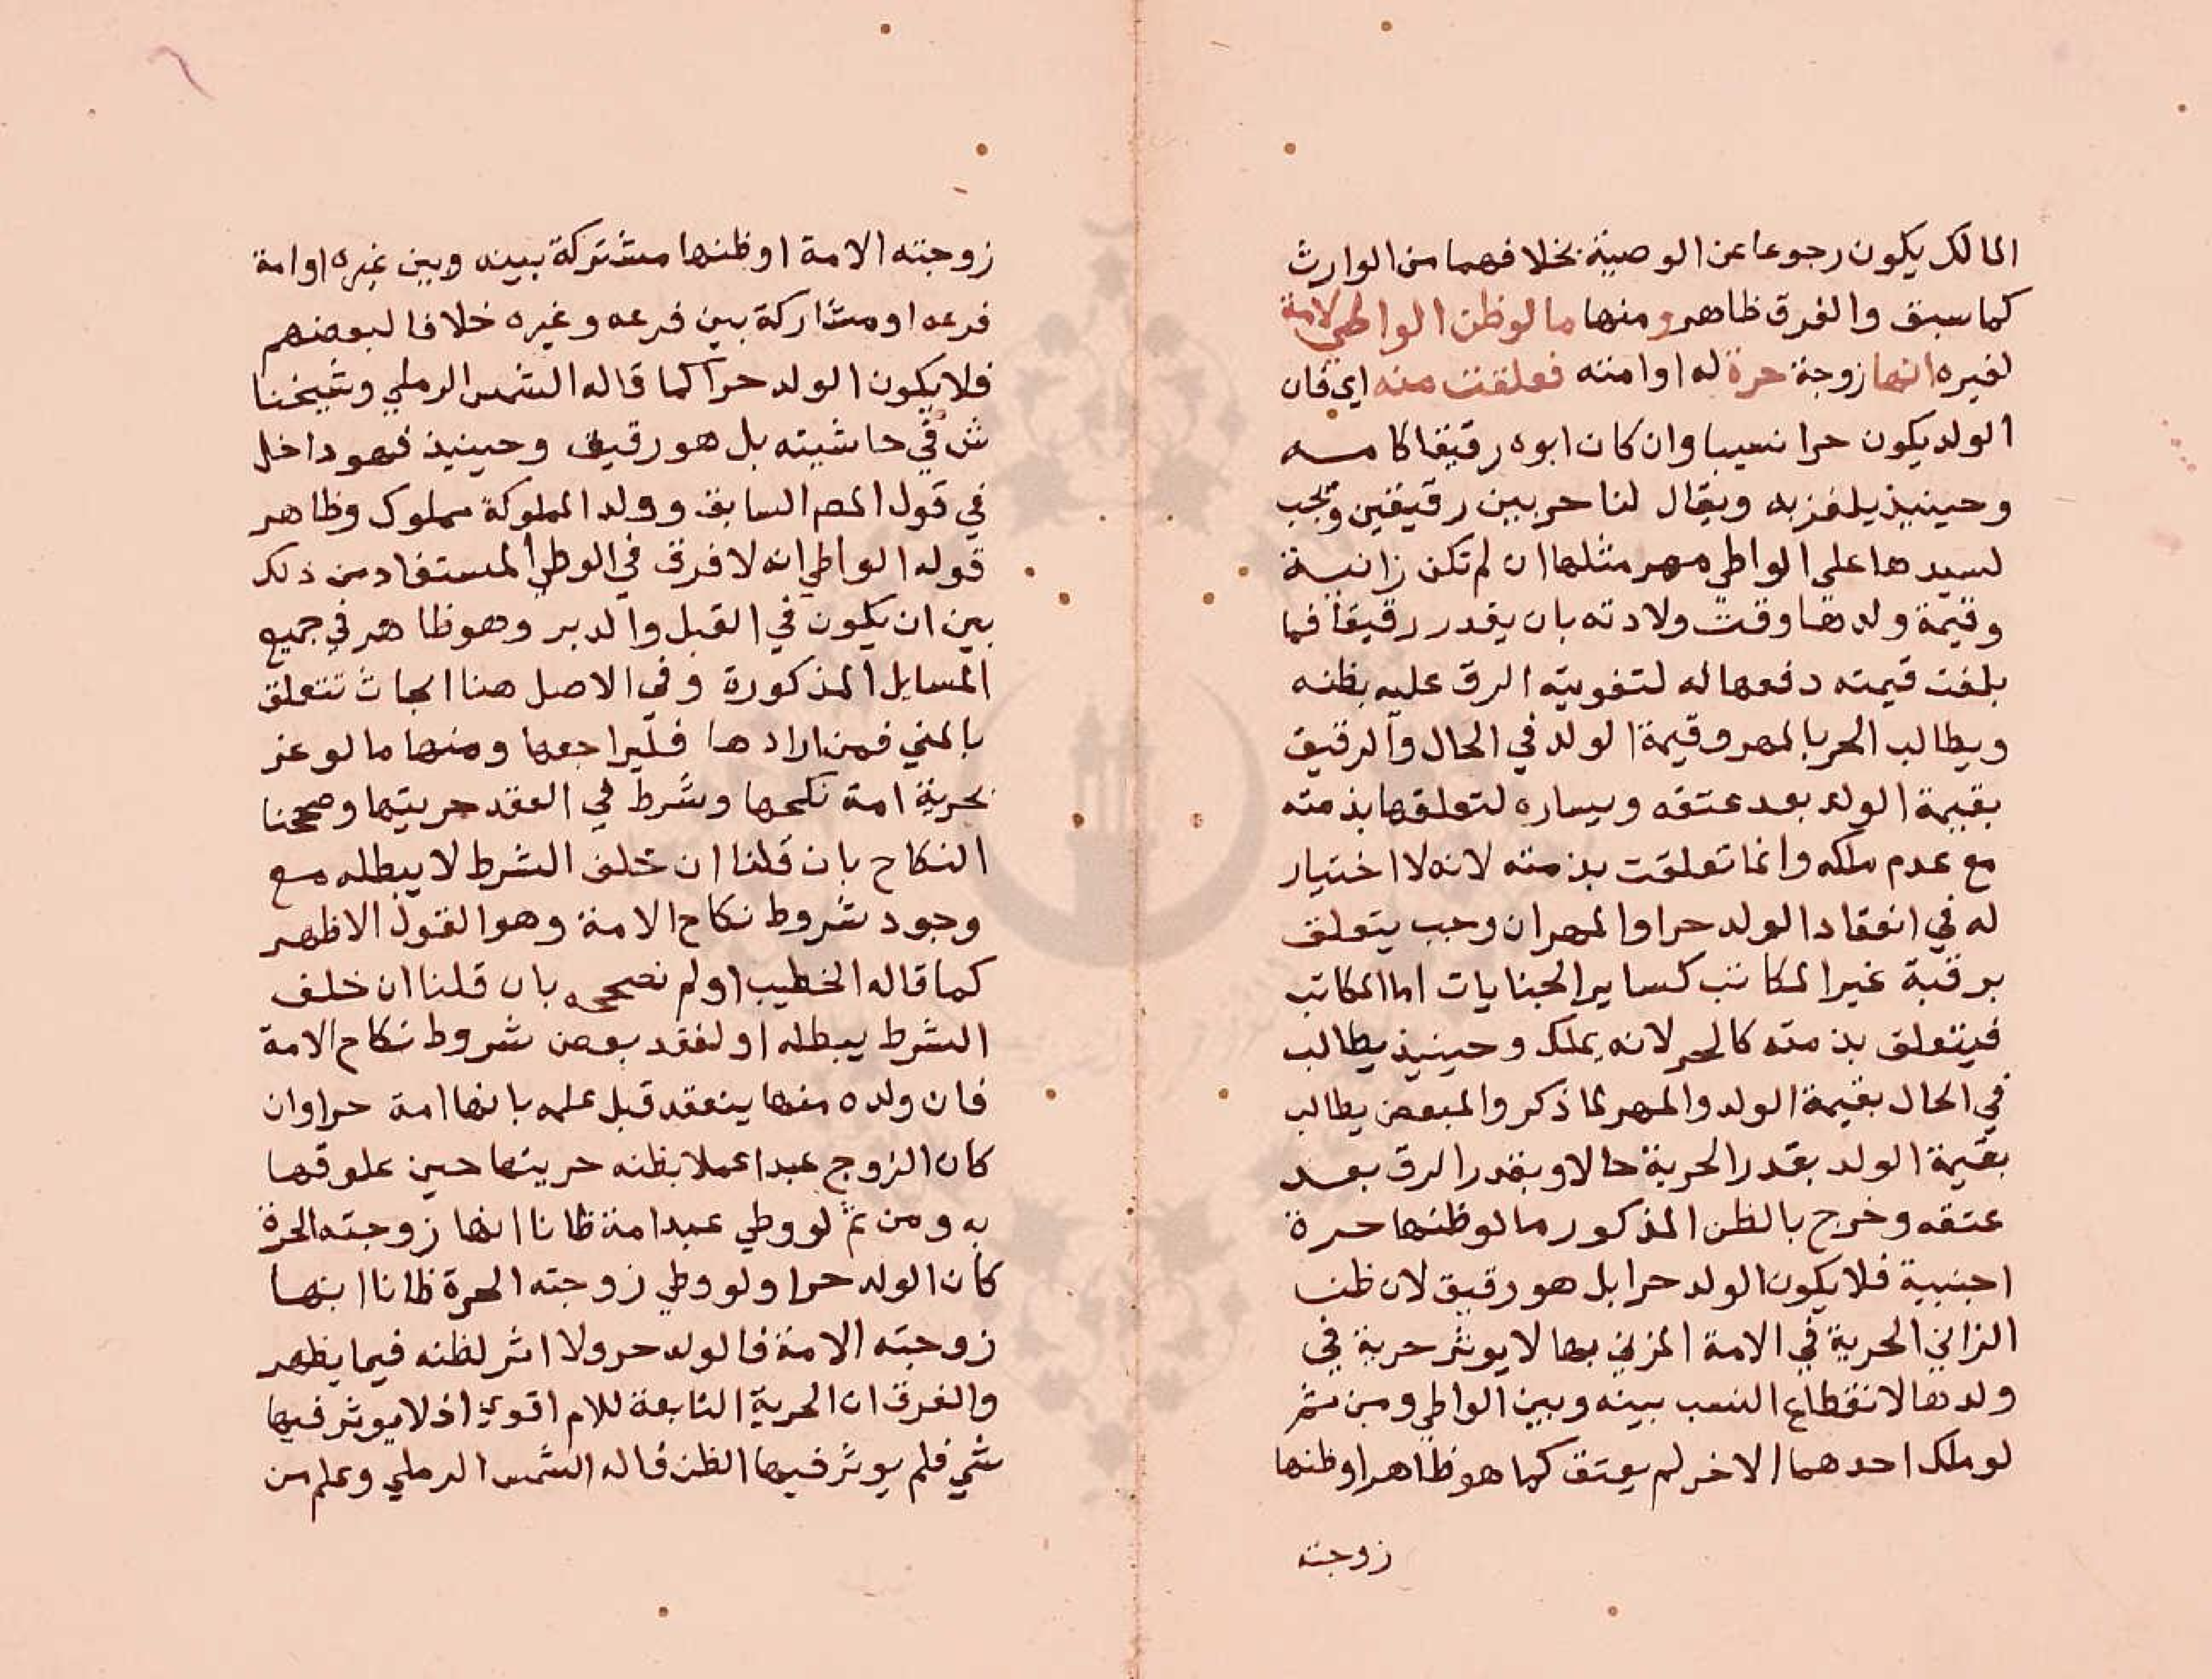 المالك يكون رجوعا عن الوصية بخلافهما من الوارث
كما سبق والفرق ظاهر ومنها مالو ظن الواطي لامة
لغيره انها زوجة حرة له او امته فعلقت منه اي فان
الولد يكون حرا نسيبا وان كان ابوه رقيقا كامه
وحينيذ يلغز به ويقال لنا حر بين رقيقين وتجب
لسيدها علي الواطي مهر مثلها ان لم تكن زانية
وقيمة ولدها وقت ولادته بان يقدر رقيقا فما
بلغت قيمته دفعها له لتفويته الرق عليه بظنه
ويطالب الحر بالمهر وقيمة الولد في الحال والرقيق
بقيمة الولد بعد عتقه ويساره لتعلقها بذمته
مع عدم ملكه وانما تعلقت بذمته لانه لا اختيار
له في انعقاد الولد حرا والمهر ان وجب يتعلق
برقبة غير المكاتب كساير الجنايات اما المكاتب
فيتعلق بذمته كالحر لانه يملك وحينيذ يطالب
في الحال بقيمة الولد والمهر لما ذكر والمبعض يطالب
بقيمة الولد بقدر الحرية حالا وبقدر الرق بعد
عتقه وخرج بالظن المذكور مالو ظنها حرة
اجنبية فلا يكون الولد حرا بل هو رقيق لان ظن
الزاني الحرية في الامة المزني بها لا يوثر حرية في
ولدها لانقطاع النسب بينه وبين الواطي ومن ثم
لو ملك احدهما الاخر لم يعتق كما هو ظاهر او ظنها
زوجته
زوجته الامة او ظنها مشتركة بينه وبين غيره او امة
فرعه او مشاركة بين فرعه وغيره خلافا لبعضهم
فلا يكون الولد حرا كما قاله الشمس الرملي وشيخنا
ش في حاشيته بل هو رقيق وحينيذ فهو داخل
في قول المص السابق وولد المملوكة مملوك وظاهر
قوله الواطي انه لا فرق في الوطي المستفاد من ذلك
بين ان يكون في القبل والدبر وهو ظاهر في جميع
المسايل المذكورة وفي الاصل هنا ابحاث تتعلق
بالمني فمن ارادها فليراجعها ومنها مالو غر
بحرية امة نكحها وشرط في العقد حريتها وصححنا
النكاح بان قلنا ان خلف الشرط لا يبطله مع
وجود شروط نكاح الامة وهو القول الاظهر
كما قاله الخطيب او لم نصححه بان قلنا ان خلف
الشرط يبطله او لفقد بعض شروط نكاح الامة
فان ولده منها ينعقد قبل علمه بانها امة حرا وان
كان الزوج عبدا عملا بظنه حريتها حين علوقها
به ومن ثم لو وطي عبد امة ظانا انها زوجته الحرة
كان الولد حرا ولو وطي زوجته الحرة ظانا انها
زوجته الامة فالولد حر ولا اثر لظنه فيما يظهر
والفرق ان الحرية التابعة للام اقوي اذ لا يوثر فيها
شي فلم يوثر فيها الظن قاله الشمس الرملي وعلم من